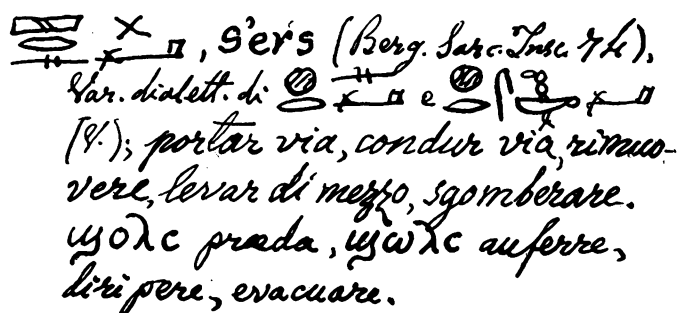 𓈙𓂋𓊃𓏴𓂡, s'ers (Berg. Sarc. Insc. 74),
Var. dialett. di 𓐍𓂋𓊃𓂡 e 𓐍𓂋𓋴 𓂡
(V.); portar via, condur via, rimuo-
vere, levar di mezzo, sgomberare.
ϣⲟⲗⲥ præda, ϣⲱⲗⲥ auferre,
diripere, evacuare.